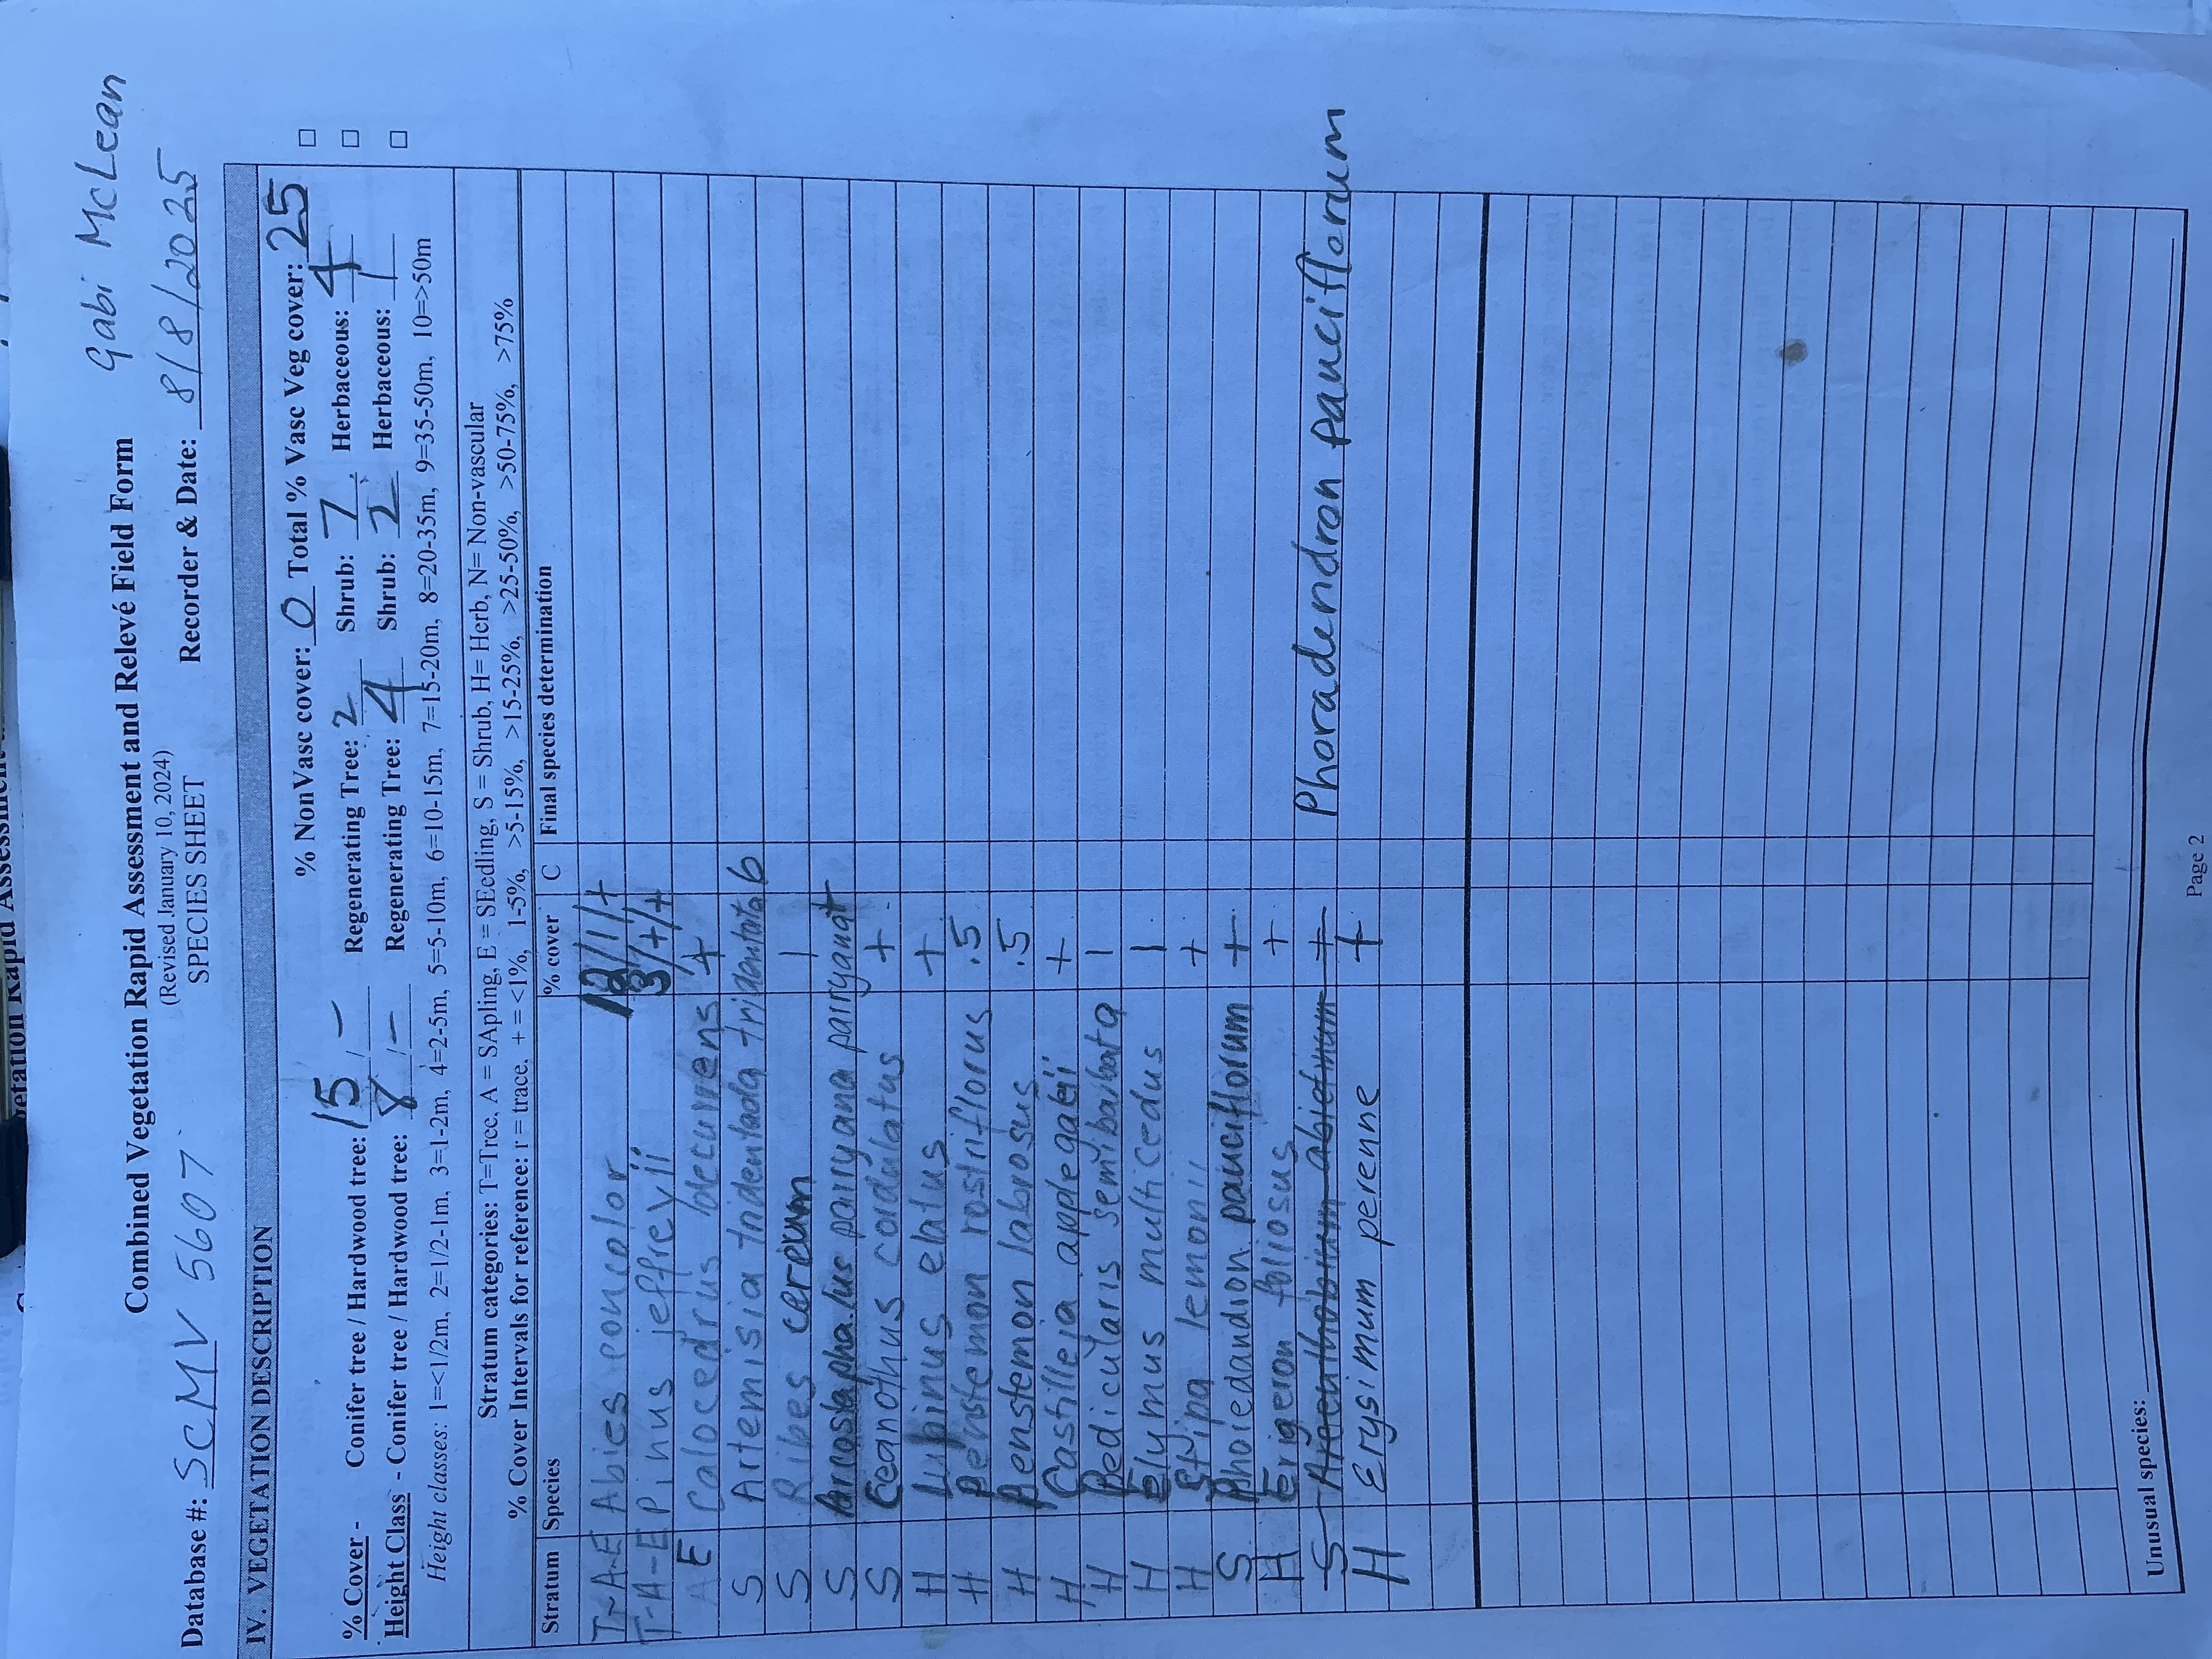 Gabi McLean
Combined Vegetation Rapid Assessment and Relevé Field Form
(Revised January 10, 2024)
SPECIES SHEET
Database #: SCMV 5607 Recorder & Date: 8/8/2025
IV. VEGETATION DESCRIPTION
% NonVasc cover: 0 Total % Vasc Veg cover: 25
% Cover - Conifer tree / Hardwood tree: 15 / - Regenerating Tree: 2 Shrub: 7 Herbaceous: 4
Height Class - Conifer tree / Hardwood tree: 8 / - Regenerating Tree: 4 Shrub: 2 Herbaceous: 1
Height classes: 1=<1/2m, 2=1/2-1m, 3=1-2m, 4=2-5m, 5=5-10m, 6=10-15m, 7=15-20m, 8=20-35m, 9=35-50m, 10=>50m
Stratum categories: T=Tree, A = SApling, E = SEedling, S = Shrub, H= Herb, N= Non-vascular
% Cover Intervals for reference: r = trace, + = <1%, 1-5%, >5-15%, >15-25%, >25-50%, >50-75%, >75%
Stratum Species % cover C Final species determination
T-A-E Abies concolor 12/1/+
T-A-E Pinus jeffreyii 3/+/+
E Calocedrus decurrens +
S Artemisia tridentada tridentata 6
S Ribes cereum 1
S Arcostaphalus parryana parryana +
S Ceanothus cordulatus +
H Lupinus elatus +
H Penstemon rostriflorus .5
H Penstemon labrosus .5
H Castilleja applegatii +
H Pedicularis semibarbata 1
H Elymus multicedus 1
H Stipa lemonii +
S Phoredandron pauciflorum +
H Erigeron foliosus +
S Arceuthobium abietinum + Phoradendron pauciflorum
H Erysimum perenne +
Unusual species:
Page 2